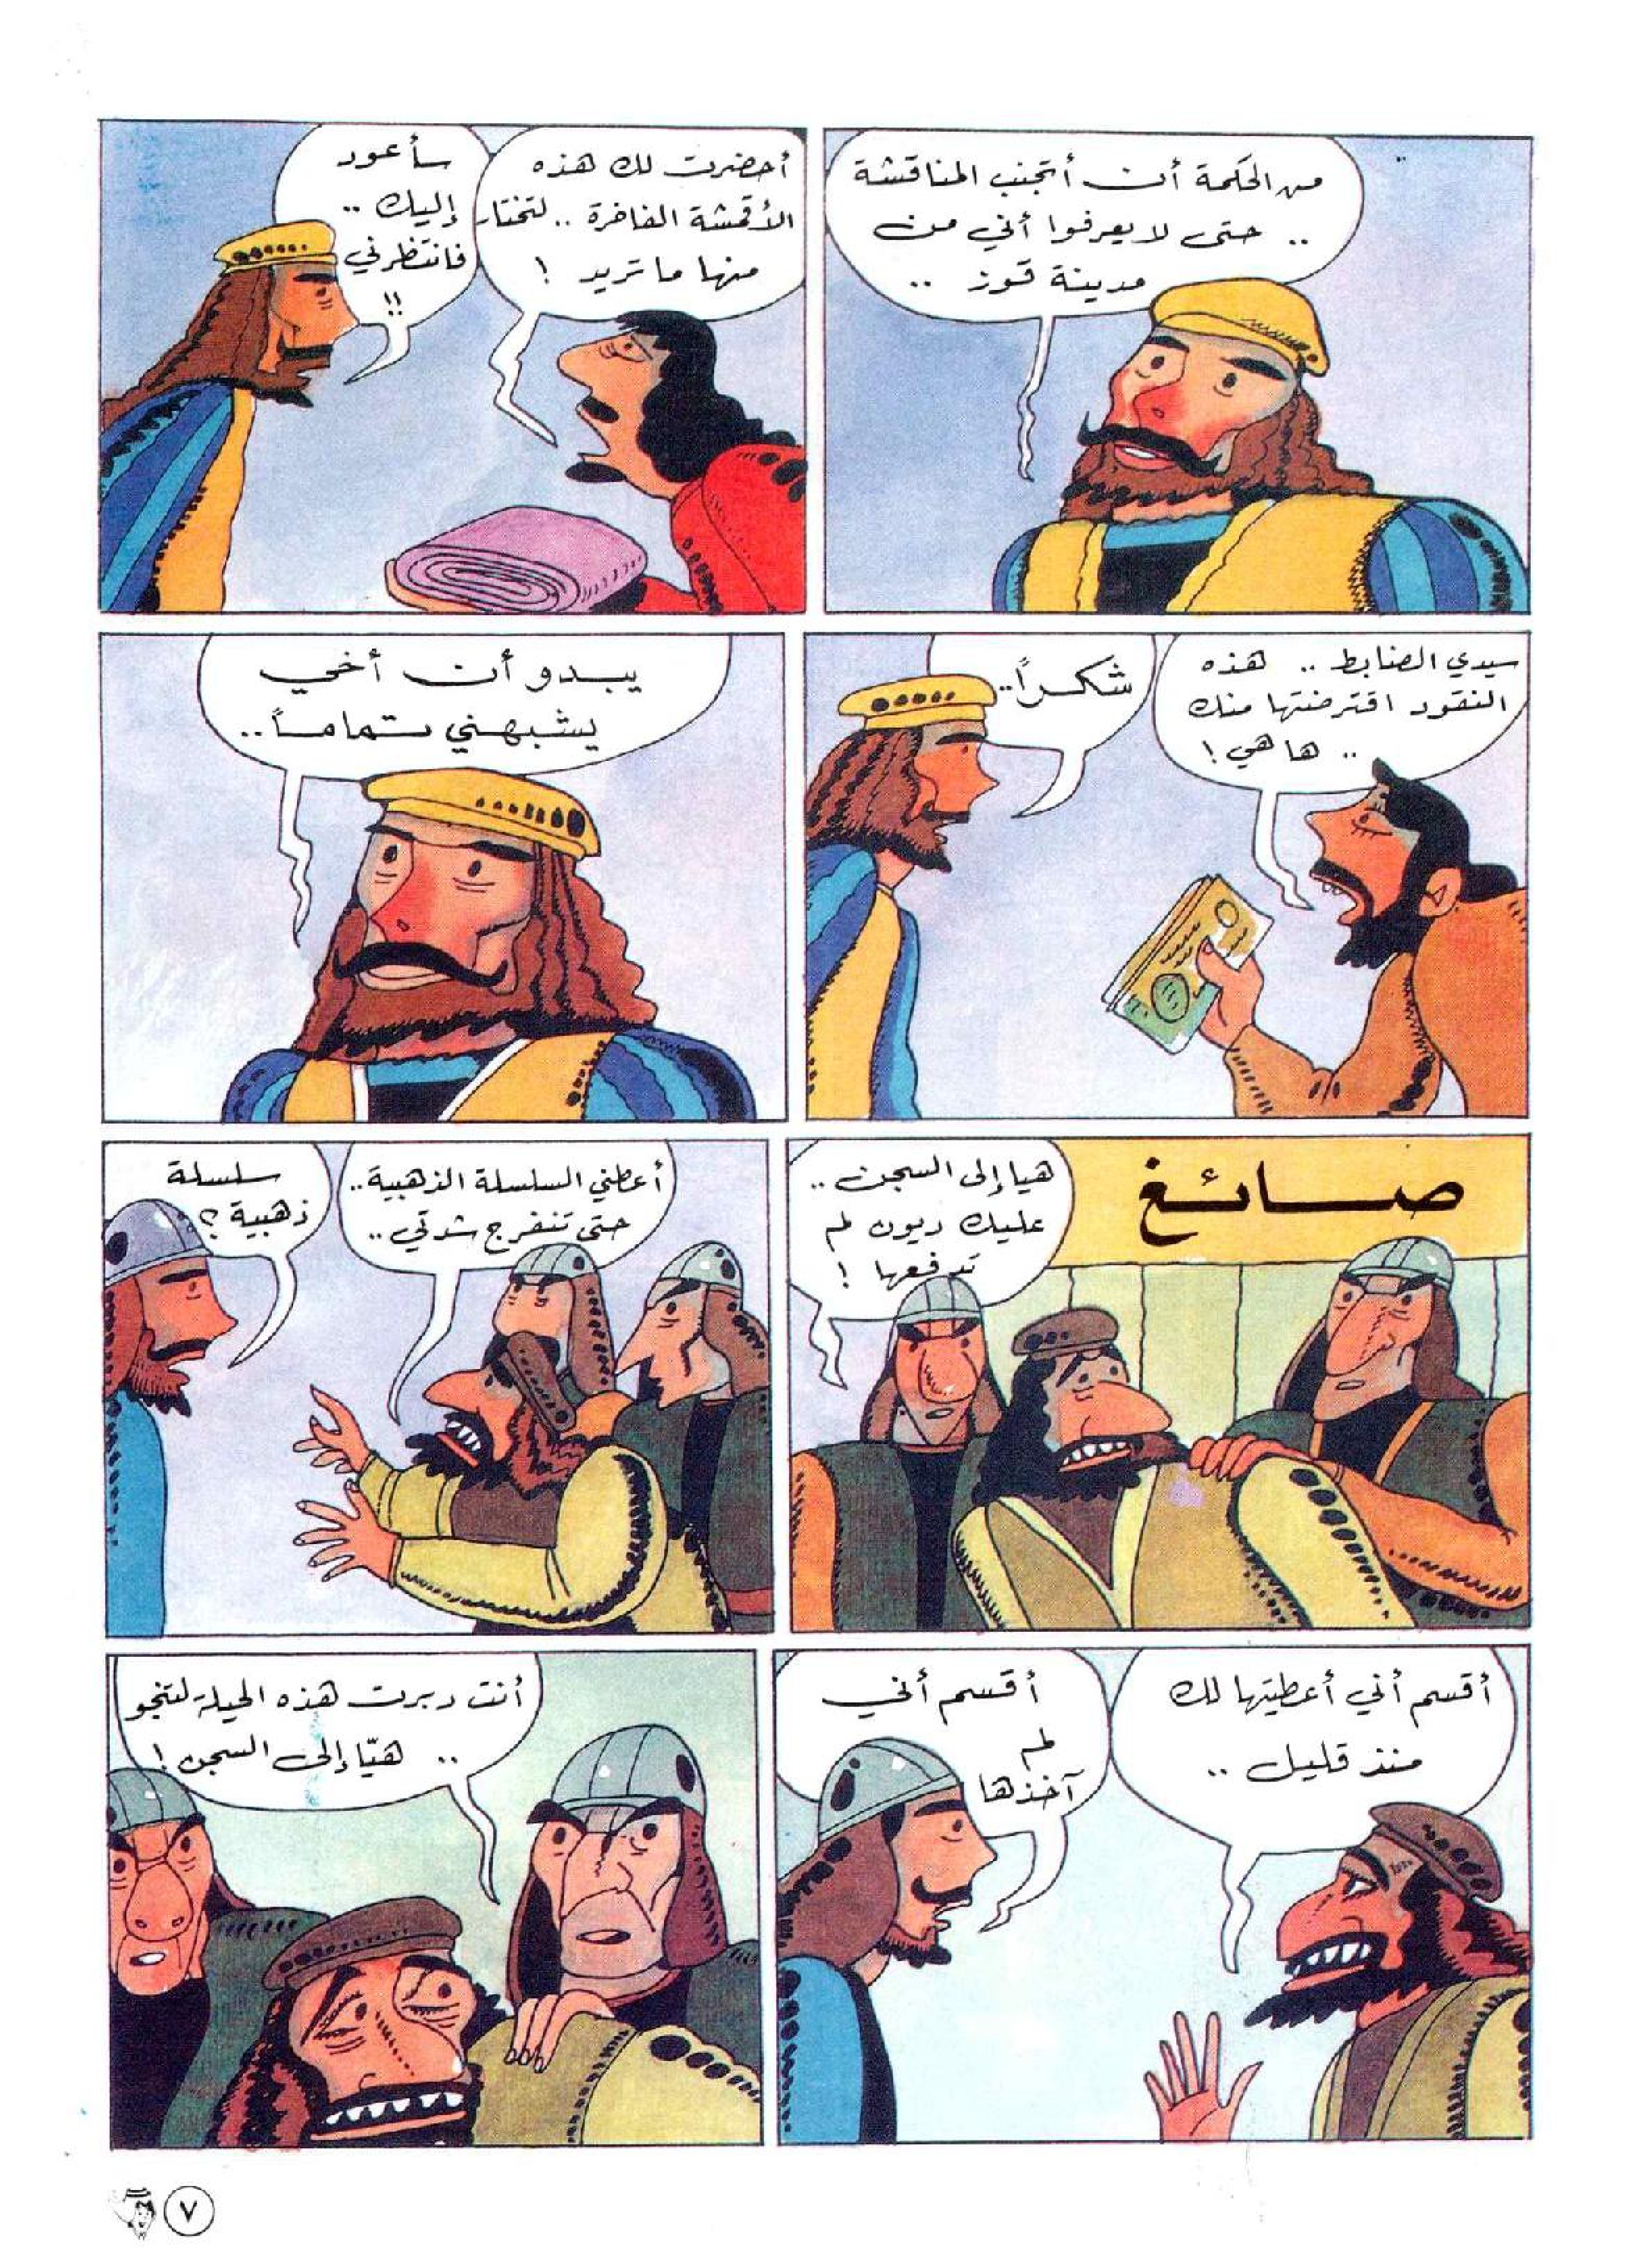 من الحكمة أن أتجنب المناقشة
.. حتى لا يعرفوا أني من
مدينة قوز ..
أحضرت لك هذه
الأقمشة الفاخرة .. لتختار
منها ما تريد !
سأعود
إليك ..
فانتظرني
!!
سيدي الضابط .. هذه
النقود اقترضتها منك
.. ها هي !
شكراً..
يبدو أن أخي
يشبهني تماماً..
صائغ
هيا إلى السجن ..
عليك ديون لم
تدفعها !
أعطني السلسلة الذهبية..
حتى تنفرج شدتي ..
سلسلة
ذهبية ؟
أقسم أني أعطيتها لك
منذ قليل ..
أقسم أني
لم
آخذها
أنت دبرت هذه الحيلة لتنجو
.. هيّا إلى السجن !
٧